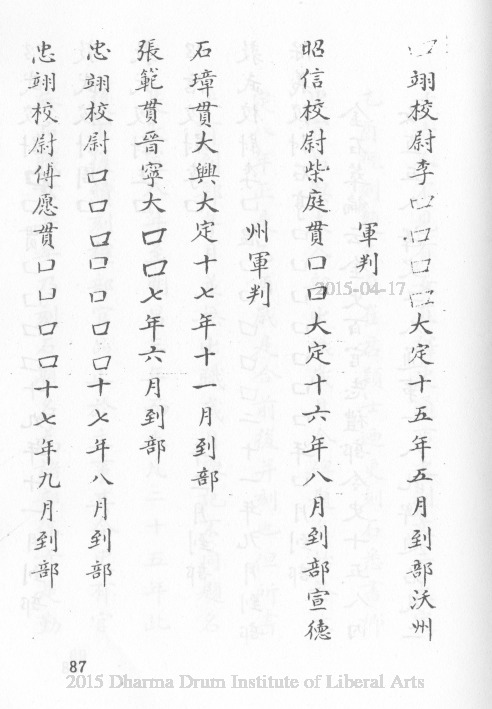 口翊校尉李口口口口大定十五年五月到部沃州
軍判
昭信校尉柴庭貫口口大定十六年八月到部宣德
州軍判
石璋貫大興大定十七年十一月到部
張範貫晉寧大口口七年六月到部
忠翊校尉口口口口口口口十七年八月到部
忠翊校尉傅愿貫口口口口十七年九月到部
2015-04-17
87
2015 Dharma Drum Institute of Liberal Arts